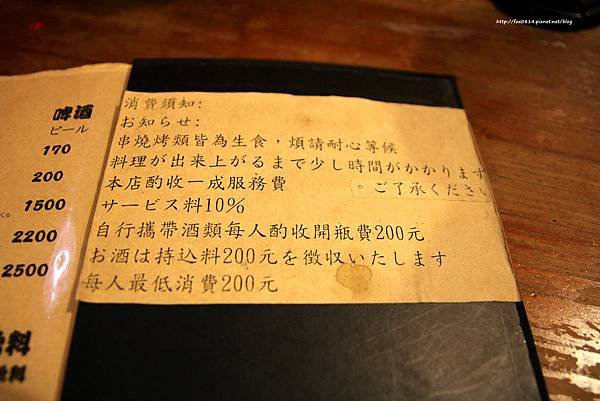 http://fox0814.pixnet.net/blog
啤酒
ビール
170
200
1500
2200
2500
料
料
消費須知:
お知らせ:
串燒烤類皆為生食，煩請耐心等候
料理が出来上がるまで少し時間がかかります
。ご了承ください
本店酌收一成服務費
サービス料10%
自行攜帶酒類每人酌收開瓶費200元
お酒は持込料200元を徴収いたします
每人最低消費200元